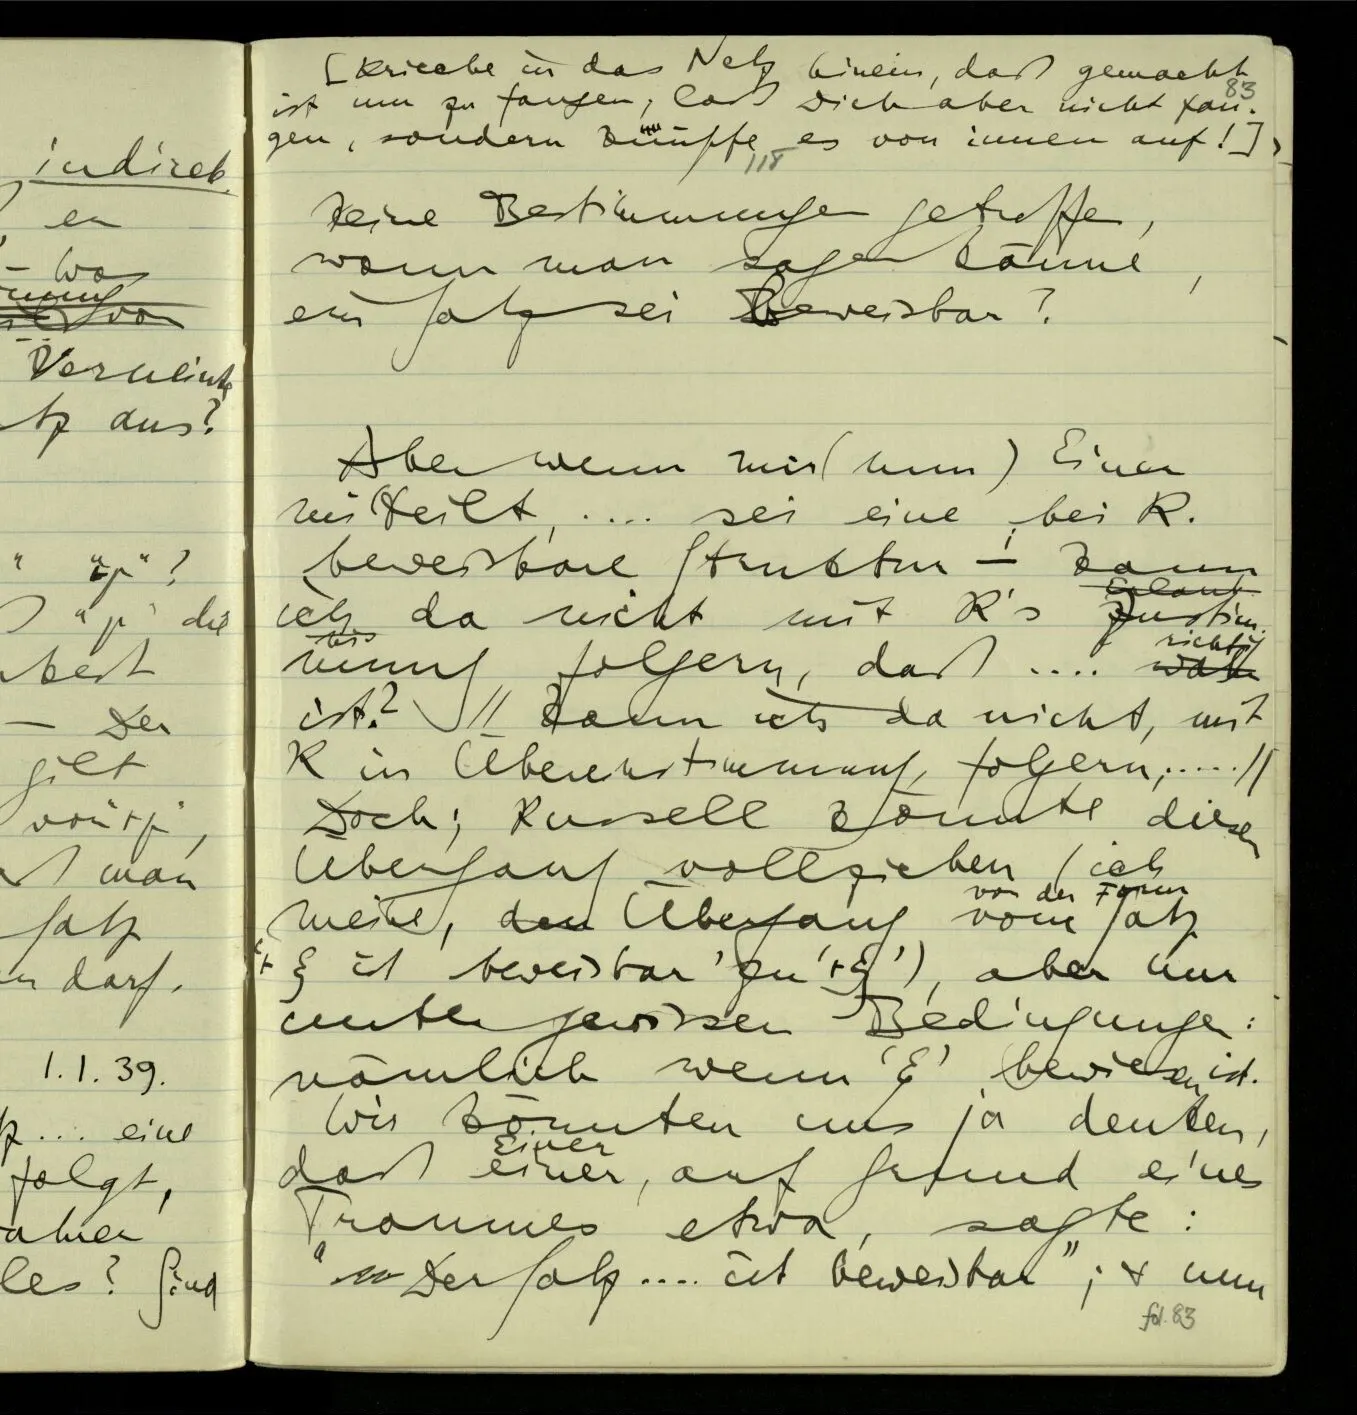 indirek
en
– was
von
Verneint
tz aus?
" "p"?
"p" die
– Der
gilt
man
Satz
en darf.
1.1.39.
tz ... eine
folgt,
les? Sind
[Krieche in das Netz hinein, daß gemacht
83
ist um zu fangen; laß Dich aber nicht fan-
gen, sondern knüpfe es von innen auf!]
118
keine Bestimmungen getroffen,
wann man sagen könne,
ein Satz sei beweisbar?
Aber wenn mir (nun) Einer
mitteilt, .... sei eine bei R.
beweisbare Struktur – kann
Erlaub
ich da nicht mit R's Zustim-
nis
richtig
mung folgern, daß .... wahr
ist? // Kann ich da nicht, mit
R in Übereinstimmung, folgern, ..... //
Doch; Russell könnte diesen
Übergang vollziehen (ich
von der Form
meine, den Übergang vom Satz
'⊢ξ ist beweisbar' zu '⊢ξ'), aber nur
unter gewissen Bedingungen:
nämlich wenn 'ξ' bewiesen ist.
Wir könnten uns ja denken,
Einer
daß einer, auf Grund eines
Traumes etwa, sagte:
"Der Satz .... ist beweisbar"; & nun
fol. 83